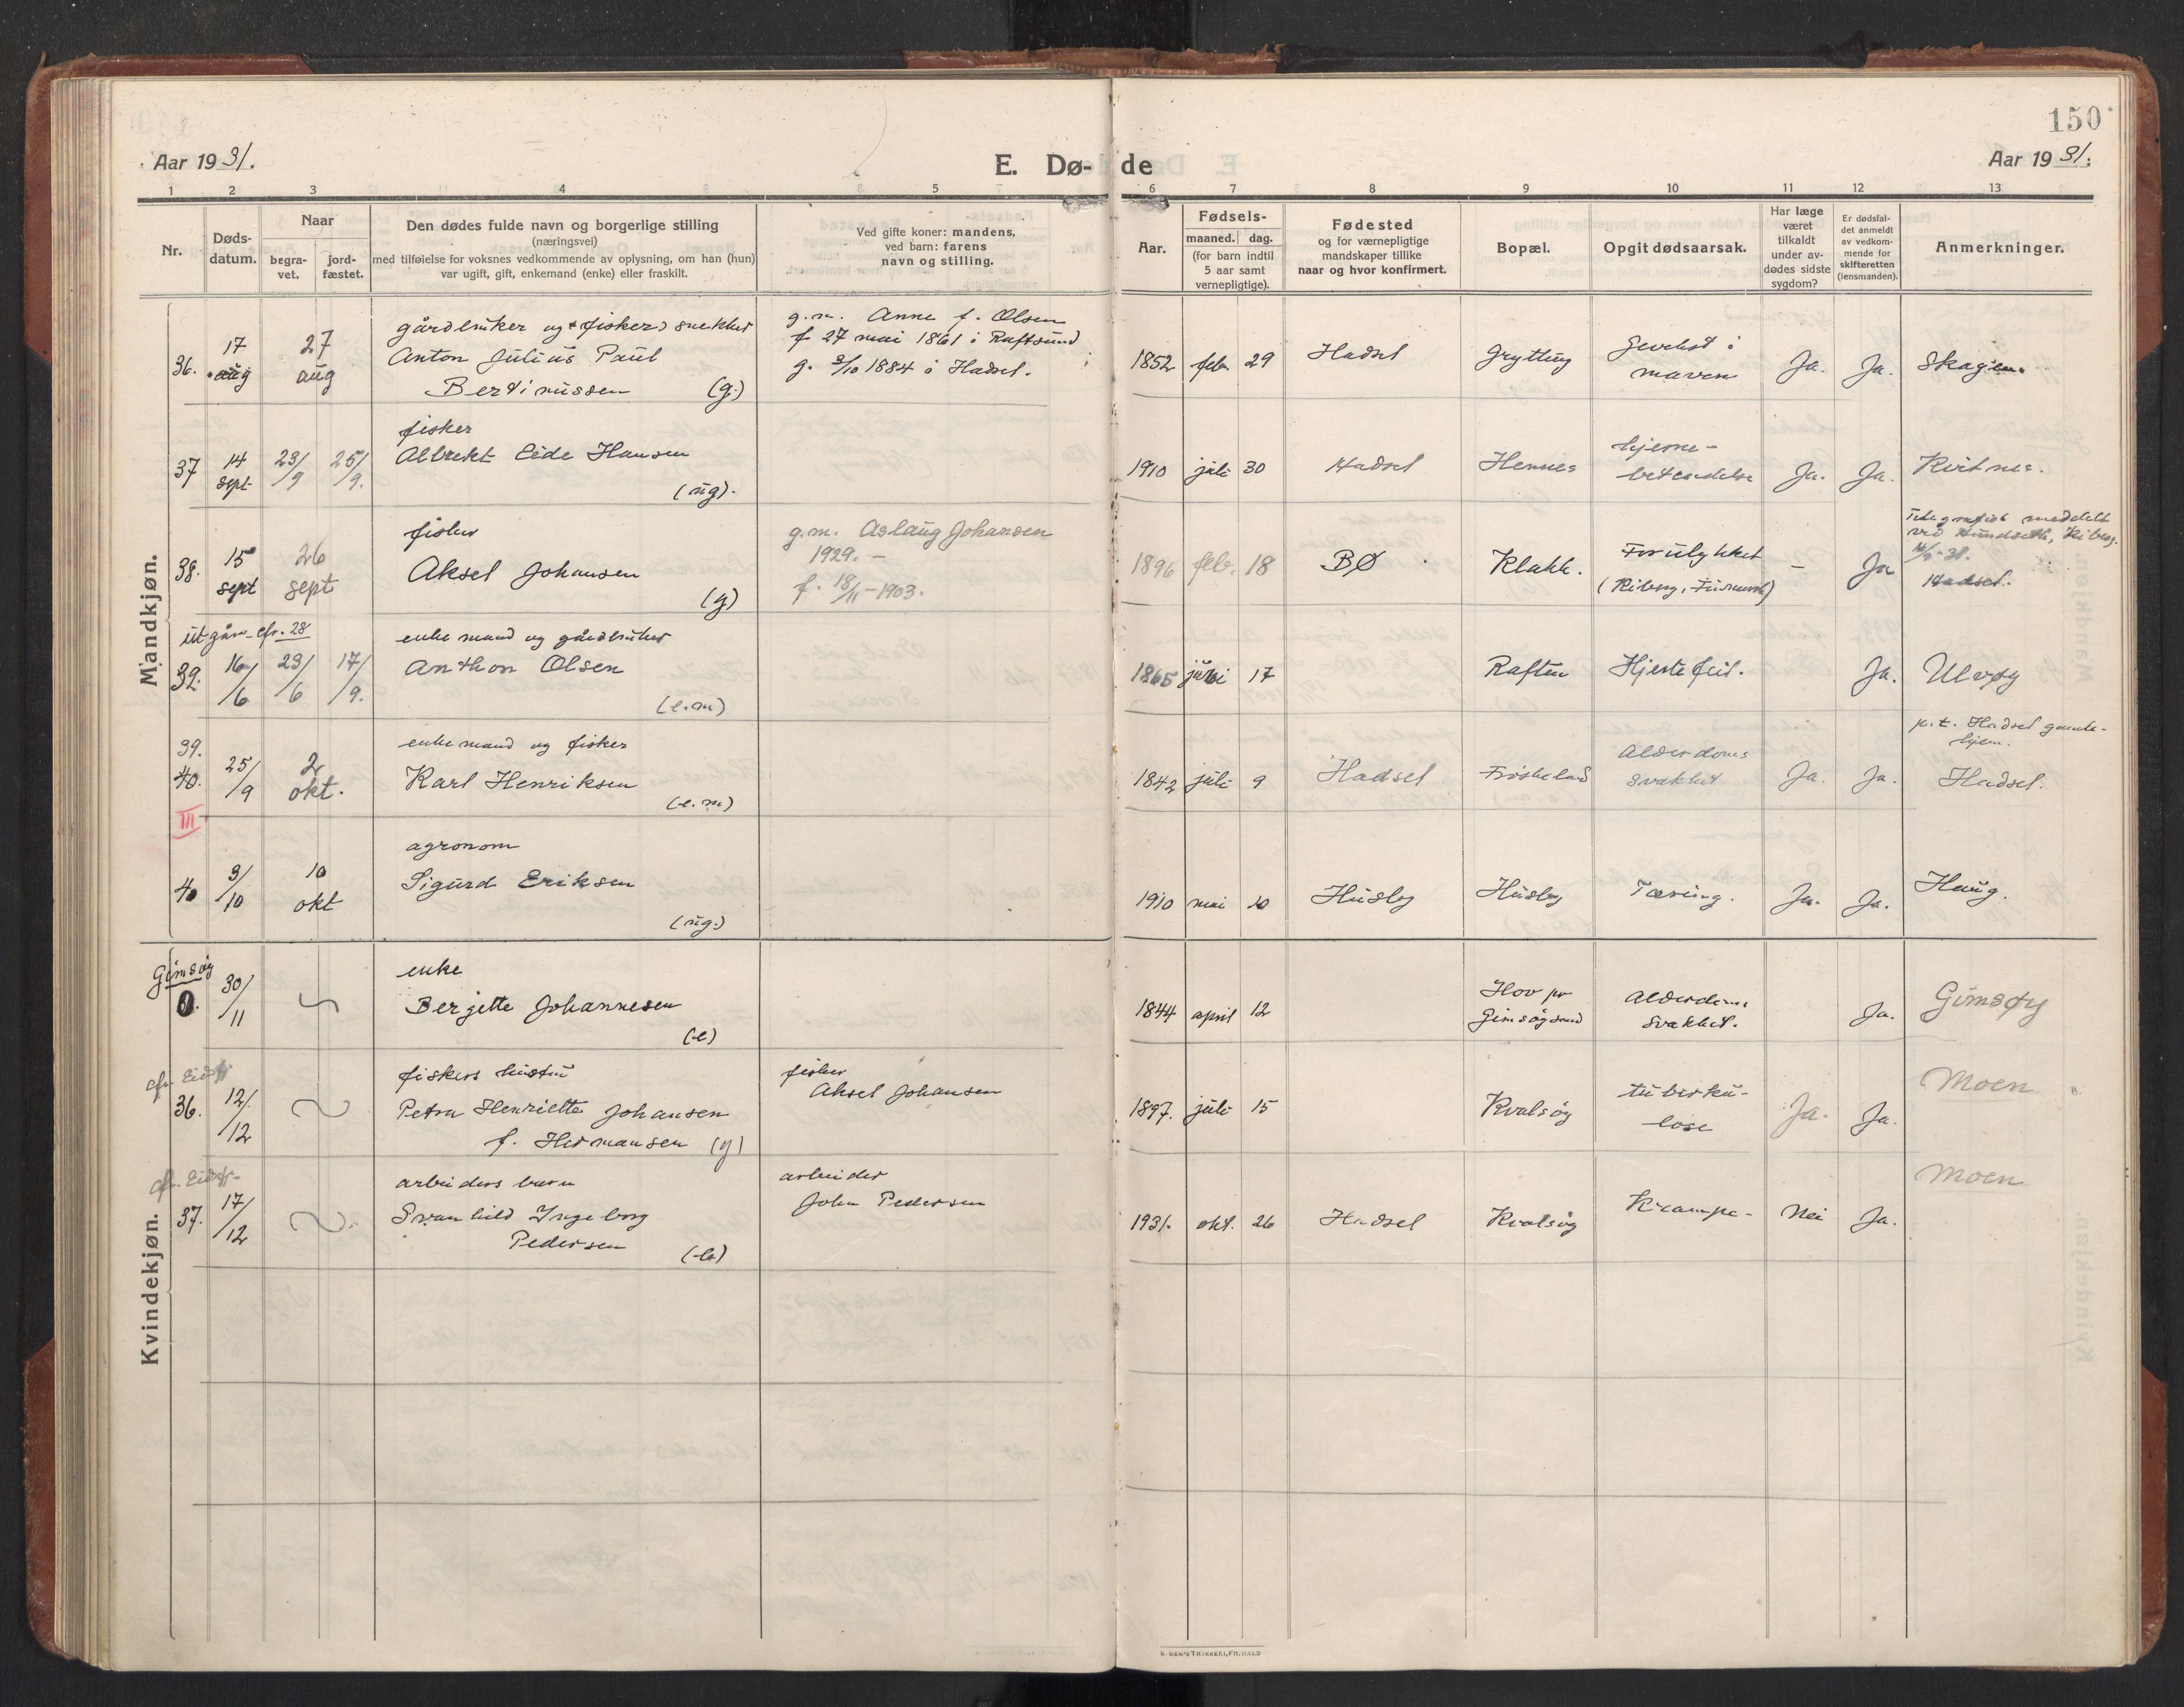 150
Aar 1931.
E. Dø- de
Aar 1931.
1 2 3 4 5 6 7 8 9 10 11 12 13
Nr.
Døds-
datum.
Naar
begra-
vet.
jord-
fæstet.
Den dødes fulde navn og borgerlige stilling
(næringsvei)
med tilføielse for voksnes vedkommende av oplysning, om han (hun)
var ugift, gift, enkemand (enke) eller fraskilt.
Ved gifte koner: mandens,
ved barn: farens
navn og stilling.
Aar.
Fødsels-
maaned. dag.
(for barn indtil
5 aar samt
vernepligtige).
Fødested
og for værnepligtige
mandskaper tillike
naar og hvor konfirmert.
Bopæl.
Opgit dødsaarsak.
Har læge
været
tilkaldt
under av-
dødes sidste
sygdom?
Er dødsfal-
det anmeldt
av vedkom-
mende for
skifteretten
(lensmanden).
Anmerkninger.
Mandkjøn.
36.
17
aug
27
aug
gårdbruker og fisker, snekker
Anton Julius Paul
Bertinussen (g.)
g.m. Anna f. Olsen
f. 27 mai 1861 i Raftsund
g. 3/10 1884 i Hadsel.
1852 feb. 29
Hadsel
Grytting
Gevekst i
maven
Ja. Ja.
Skagen.
37
14
sept
23/9 25/9.
fisker
Albrekt Eide Hansen
(ug).
1910 juli 30
Hadsel
Hennes
hjerne-
betendelse
Ja. Ja.
38.
15
sept
26
sept
fisker
Aksel Johansen
(g)
g.m. Aslaug Johansen
1929. -
f. 18/11-1903.
1896 feb. 18
BØ
Klakk.
Forulykket
(Kiberg, Finnmark)
-
Ja
Telegrafisk meddelt
ved
Hadsel.
utgår cfr. 28
39.
16/6 23/6 17/9.
enkemand og gårdbruker
Anthon Olsen
(e.m)
1865 juni 17
Raften
Hjertefeil.
Ja.
Ulvøy
39.
40.
25/9
2
okt.
enkemand og fisker
Karl Henriksen
(e.m)
1842 juli 9
Hadsel
Frøskeland
Alderdoms
svakhet
Ja. Ja.
p.t. Hadsel gamle-
hjem.
Hadsel.
III
40
3/10
10
okt
agronom
Sigurd Eriksen
(ug.)
1910 mai 10
Husby
Husby
Tæring.
Ja. Ja.
Haug.
Kvindekjøn.
Gimsøy
0.
30/11
enke
Bergette Johannesen
(e)
1844 april 12
Hov pr
Gimsøysund
Alderdoms
svakhet.
Ja.
Gimsøy
cfr. Eidsfj
36.
12/12
fiskers hustru
Petra Henriette Johansen
f. Hermansen (g)
fisker
Aksel Johansen
1897. juli 15
Kvalsøy
tuberku-
lose
Ja. Ja.
Moen
cfr. Eidsfj-
37.
17/12
arbeiders barn
Svanhild Ingeborg
Pedersen (b)
arbeider
John Pedersen
1931. okt. 26
Hadsel
Kvalsøy
Krampe-
Nei Ja.
Moen